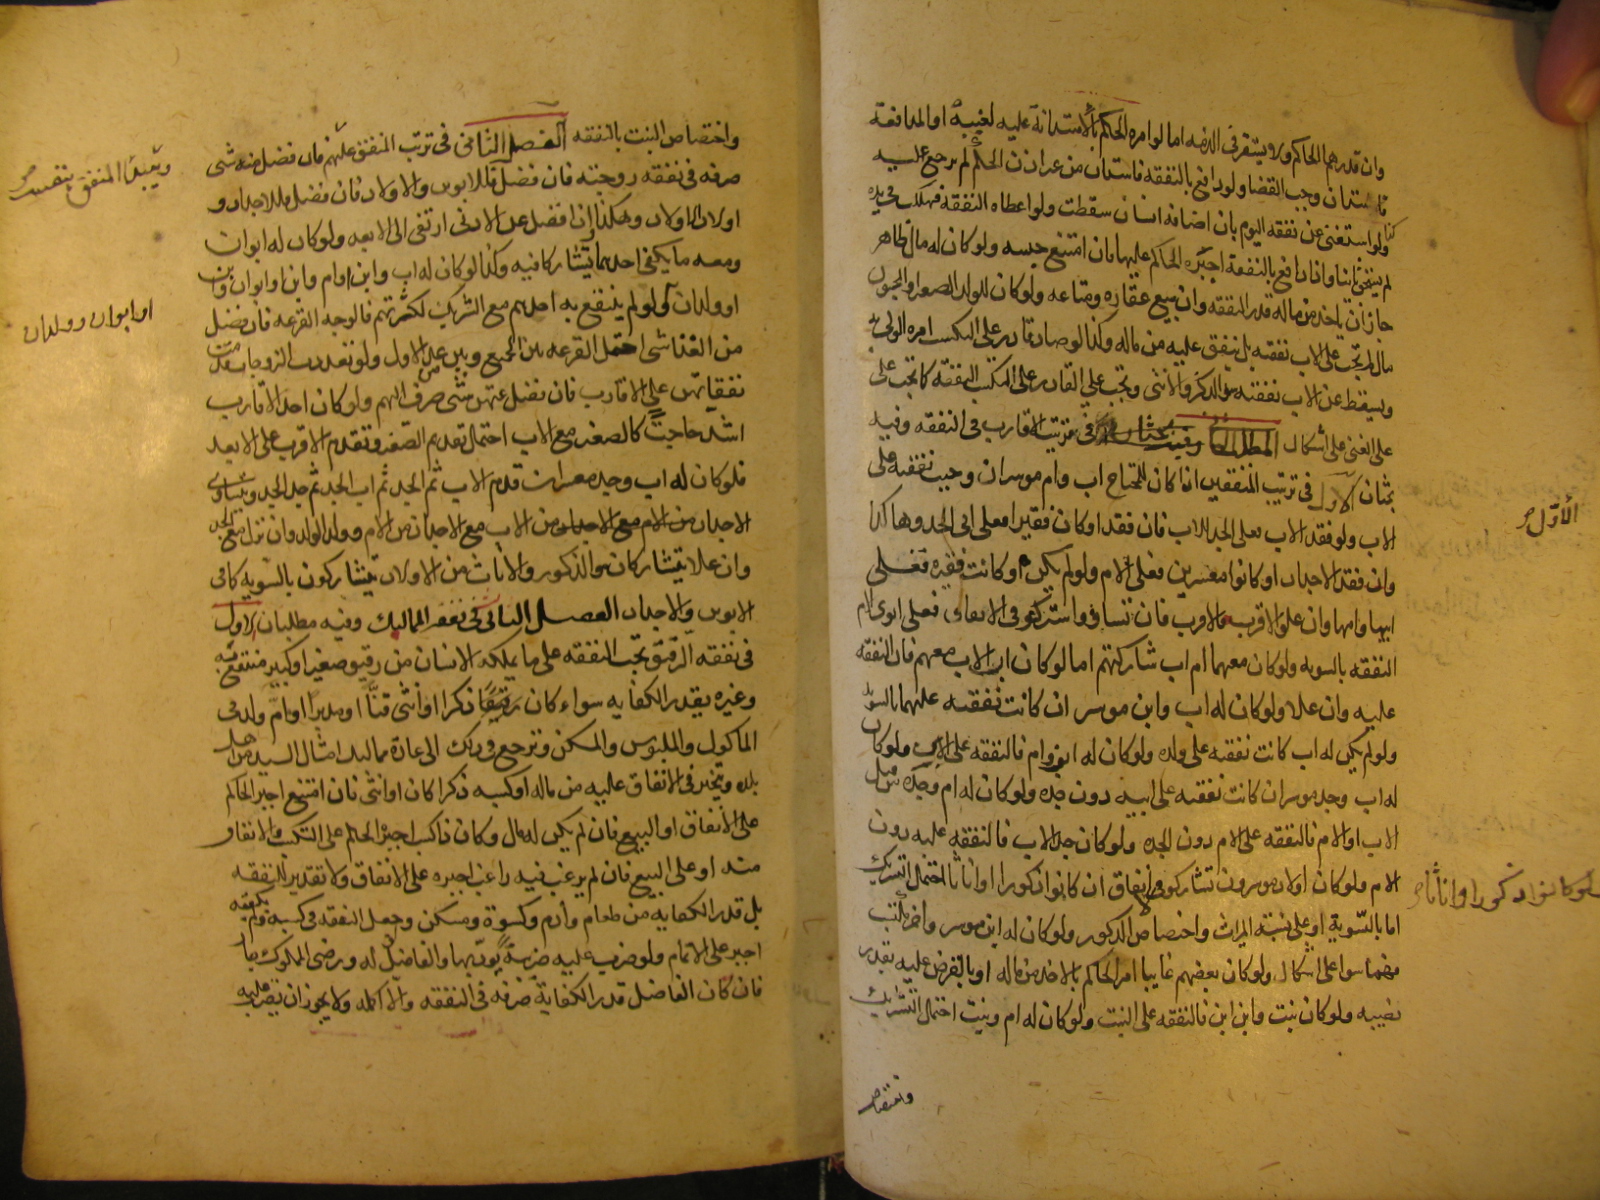 وان قدرهما الحاكم ولا يستقر في الذمه اما لو امره الحاكم بالاستدانة عليه لغيبة او المدافعة
فاستدان وجب القضا ولو دافع بالنفقه فاستدان من غير اذن الحاكم لم يرجع عليه
كذا ولو استغنى عن نفقه اليوم بان اضافه انسان سقطت ولو اعطاه النفقه فهلكت في يده
لم يستحق ثانيا واذا دافع بالنفقة اجبره الحاكم عليها فان امتنع حبسه ولو كان له مال ظاهر
جاز ان ياخذ من ماله قدر النفقه وان يبيع عقاره ومتاعه ولو كان للولد الصغير او المجنون
مال لم تجب على الاب نفقته بل ينفق عليه من ماله وكذا لو صار قادرا على التكسب امره الولي به
ويسقط عن الاب نفقته سوا الذكر والانثى وتجب على القادر على التكسب النفقه كما تجب على
على الغنى على اشكال المطلب في ترتيب الاقارب في النفقه وفيه
بحثان الاول في ترتيب المنفقين اذا كان للمحتاج اب وام موسران وجبت نفقته على
الاب ولو فقد الاب فعلى الجد للاب فان فقد او كان فقيرا فعلى ابى الجد وهكذا
وان فقد الاجداد او كانوا معسرين فعلى الام ولو لم يكن او كانت فقيره فعلى
ابيها وامها وان علو الاقرب فالاقرب فان تساووا اشتركوا في الانفاق فعلى ابوى الام
النفقه بالسويه ولو كان معهما ام اب شاركتهم اما لو كان اب الاب معهم فان النفقه
عليه وان علا ولو كان له اب وابن موسر ان كانت نفقته عليهما بالسويه
ولو لم يكن له اب كانت نفقته على ولده ولو كان له ابن وام فالنفقه على الابن ولو كان
له اب وجد موسران كانت نفقته على ابيه دون جده ولو كان له ام وجده من قبل
الاب او الام فالنفقه على الام دون الجده ولو كان جد الاب فالنفقه عليه دون
الام ولو كان اولاد موسرون تشاركوا في الانفاق ان كانوا ذكورا او اناثا احتمل التشريك
اما بالسوية او على نسبة الميراث واختصاص الذكور ولو كان له ابن موسر واخر مكتسب
فهما سوا على اشكال ولو كان بعضهم غايبا امر الحاكم بالاخذ من ماله او بالقرض عليه بقدر
نصيبه ولو كان بنت وابن ابن فالنفقه على البنت ولو كان له ام وبنت احتمل التشريك
واختصاص
الاول
لو كانوا ذكورا واناثا
واختصاص البنت بالنفقه الفصل الثانى في ترتب المنفق عليهم فان فضل منه شى
صرفه في نفقه زوجته فان فضل فللابوين والاولاد فان فضل فللاجداد و
اولاد الاولاد وهكذا ان فضل عن الادنى ارتقى الى الابعد ولو كان له ابوان
ومعه ما يكفى احدهما تشاركا فيه وكذا لو كان له اب وابن او ام وابن او ابوان وابن
او ولدان ولو لم ينتفع به احدهم مع الشريك لكثرتهم فالوجه القرعه فان فضل
من الغنا شى احتمل القرعه بين الجميع وبين عدا الاول ولو تعددت الزوجات قدمت
نفقاتهن على الاقارب فان فضل عنهن شى صرف اليهم ولو كان احد الاقارب
اشد حاجة كالصغير مع الاب احتمل تقديم الصغير وتقدم الاقرب على الابعد
فلو كان له اب وجد معسران قدم الاب ثم الجد ثم اب الجد ثم جد الجد ويتساوى
الاجداد من الام مع الاجداد من الاب مع الاجداد من الام وولد الولد وان نزل مع الجد
وان علا يتشاركان والذكور والاناث من الاولاد يتشاركون بالسويه كما في
الابوين والاجداد الفصل الثانى في نفقه المماليك وفيه مطلبان الاول
في نفقه الرقيق تجب النفقه على ما يملكه الانسان من رقيق صغير او كبير منتفع به
وغيره بقدر الكفايه سواء كان رقيقا ذكرا او انثى قنا او مدبرا او ام ولد في
الماكول والملبوس والمسكن وترجع في ذلك الى عادة مماليك امثال السيد من اهل
بلده ويتخير في الانفاق عليه من ماله او كسبه ذكرا كان او انثى فان امتنع اجبر الحاكم
على الانفاق او البيع فان لم يكن له مال وكان ذا كسب اجبره الحاكم على التكسب والانفاق
منه او على البيع فان لم يرغب فيه راغب اجبره على الانفاق ولا تقدير للنفقه
بل قدر الكفايه من طعام وادم وكسوة ومسكن وجعل النفقه في كسبه فلم يكفه
اجبر على الاتمام ولو ضرب عليه ضريبة يؤديها والفاضل له ورضى المملوك بها
فان كان الفاضل قدر الكفاية صرفه في النفقه والا اكمله ولا يجوز ان يضرب عليه
ويبدا المنفق بنفسه
او ابوان وولدان